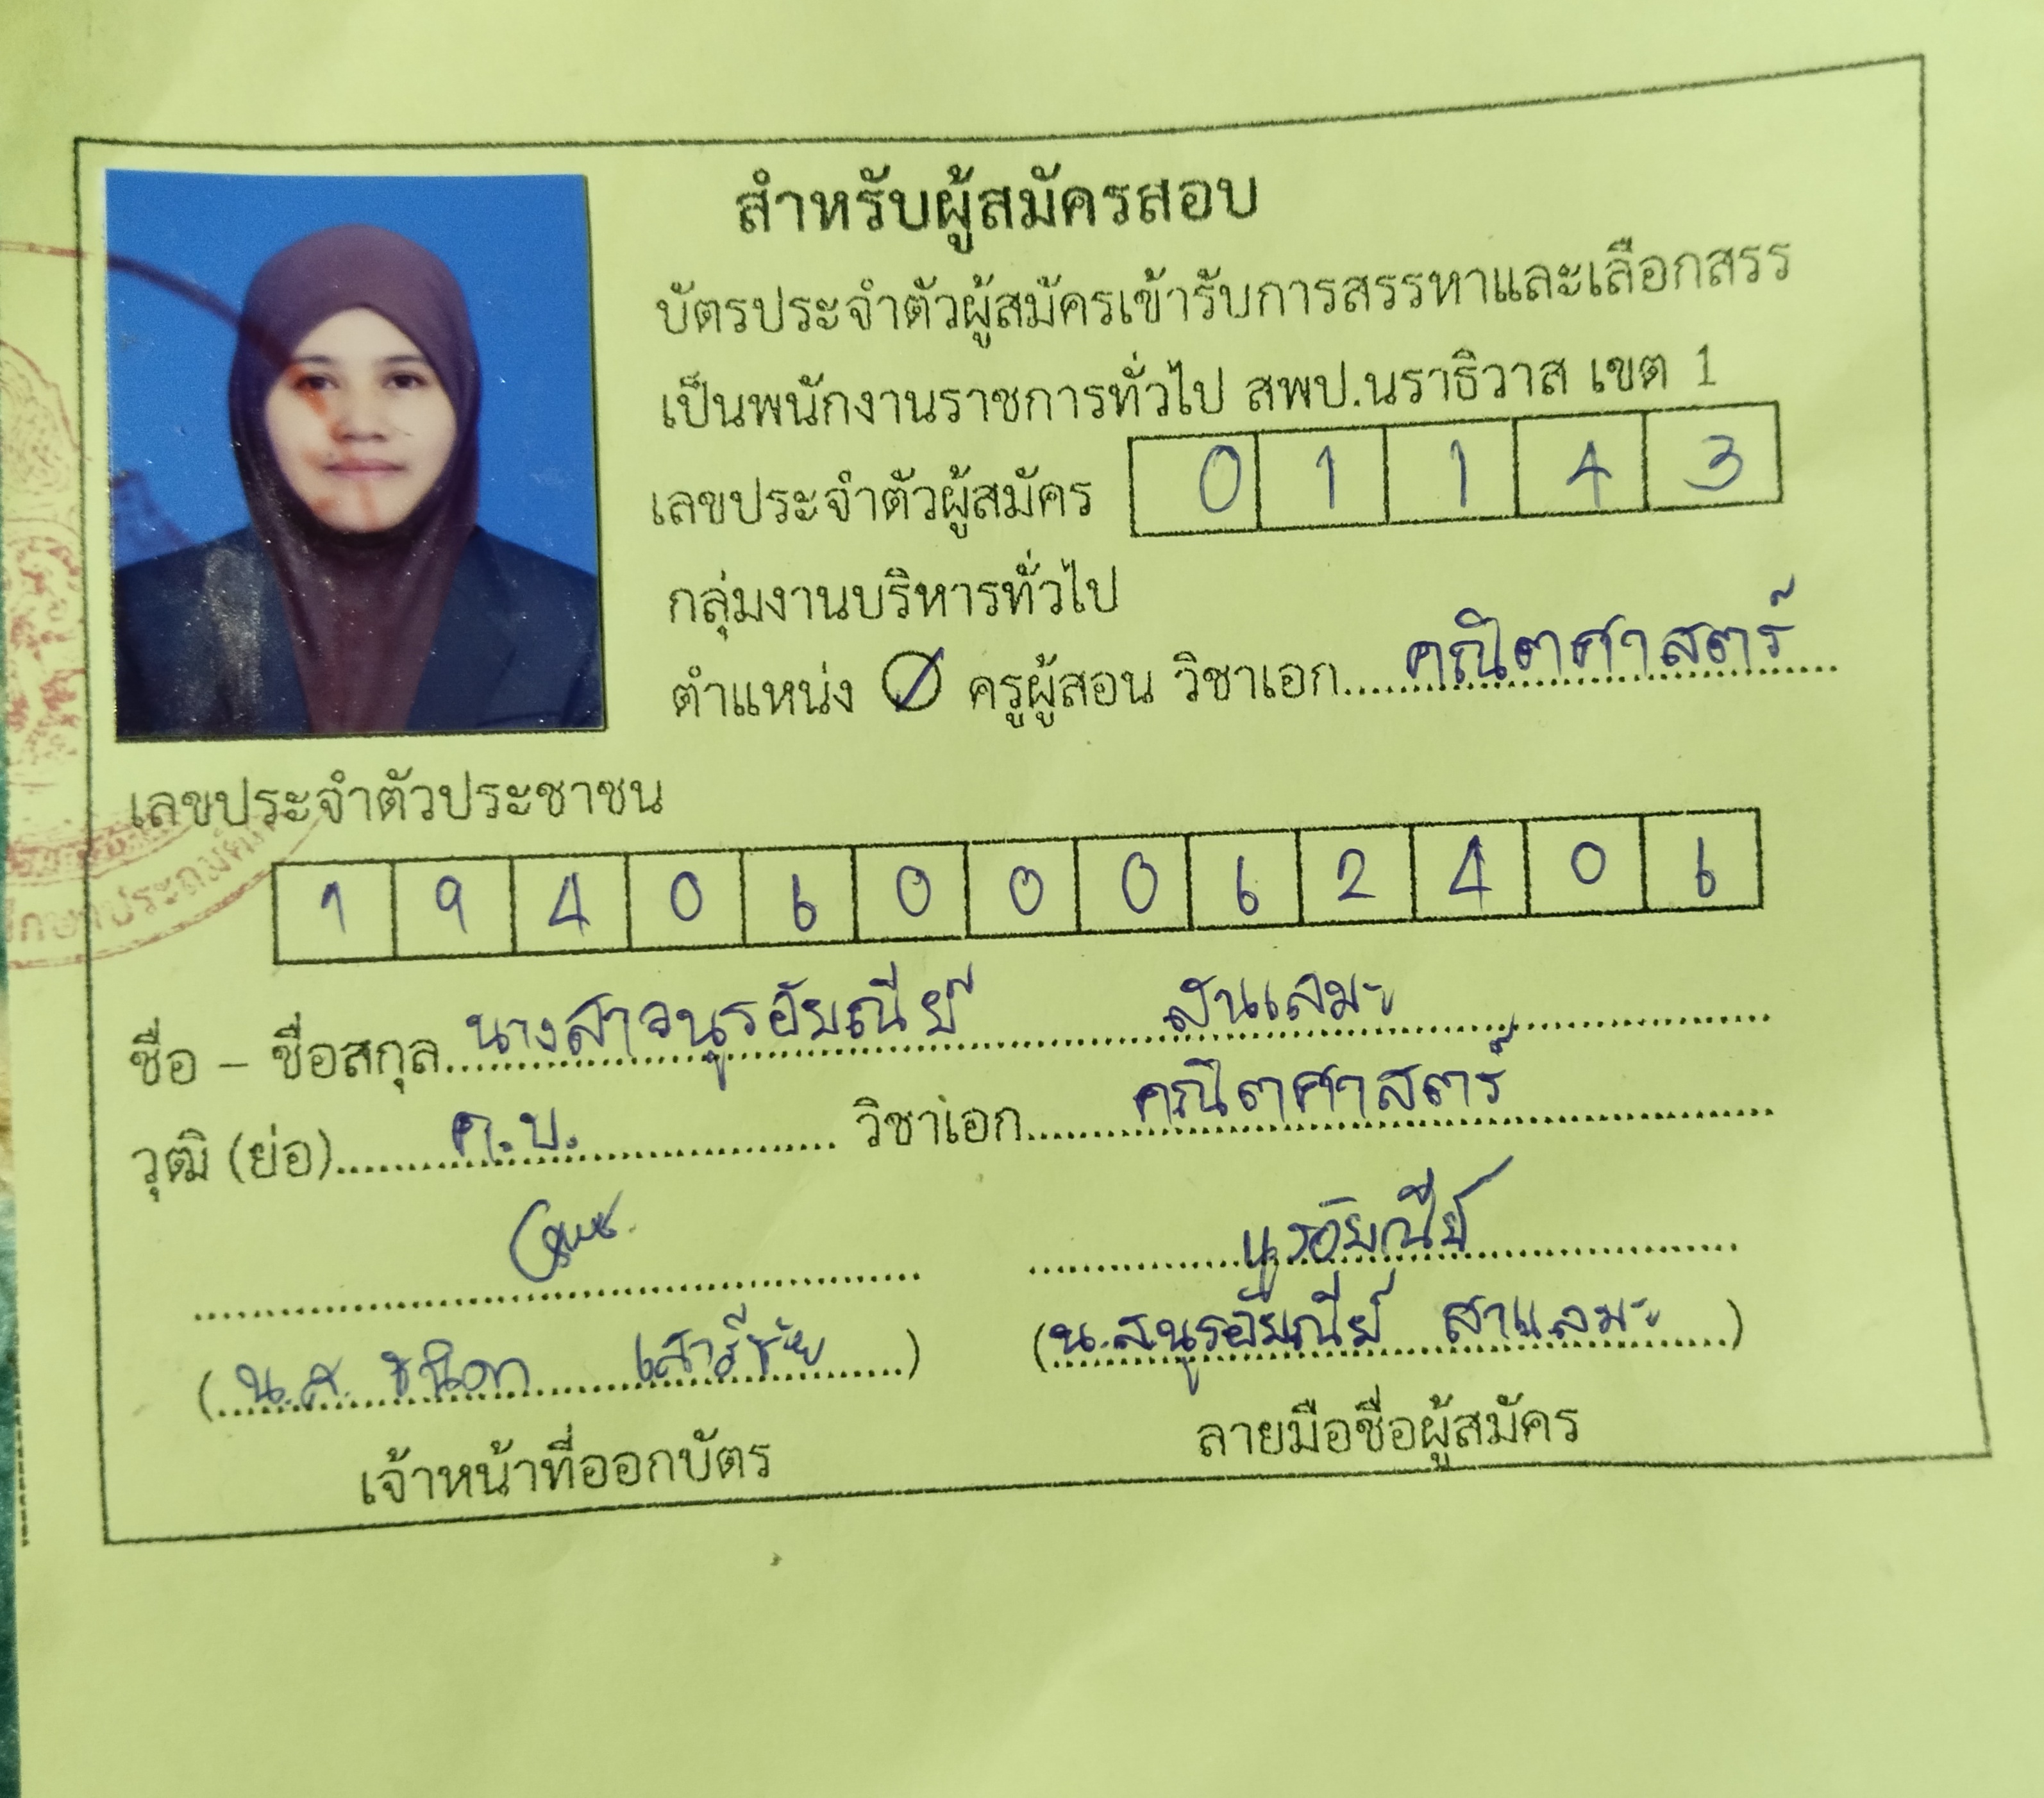 สำหรับผู้สมัครสอบ
บัตรประจำตัวผู้สมัครเข้ารับการสรรหาและเลือกสรร
เป็นพนักงานราชการทั่วไป สพป.นราธิวาส เขต 1
เลขประจำตัวผู้สมัคร 0 1 1 4 3
กลุ่มงานบริหารทั่วไป
ตำแหน่ง ครูผู้สอน วิชาเอก คณิตศาสตร์
เลขประจำตัวประชาชน
1 9 4 0 6 0 0 0 6 2 4 0 6
ชื่อ - ชื่อสกุล นางสาวนูรอัยณีย์
วุฒิ (ย่อ) ค.บ. วิชาเอก คณิตศาสตร์
นูรอัยณีย์
(น.ส. ) (น.ส.นูรอัยณีย์ สาแลมะ)
เจ้าหน้าที่ออกบัตร ลายมือชื่อผู้สมัคร